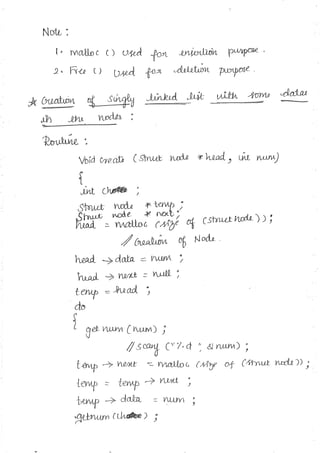 Note :
1. malloc () used for insertion purpose.
2. Free () used for deletion purpose.
* Creation of singly linked list with some datas
in the nodes :
Routine :
Void Create (Struct node * head, int num)
{
int ch ;
Struct node * temp ;
Struct node * next ;
head = malloc (size of (Struct node)) ;
// Creation of Node.
head → data = num ;
head → next = null ;
temp = head ;
do
{
get num (num) ;
// scanf ("%d" &num) ;
temp → next = malloc (size of (struct node)) ;
temp = temp → next ;
temp → data = num ;
getnum (
) ;